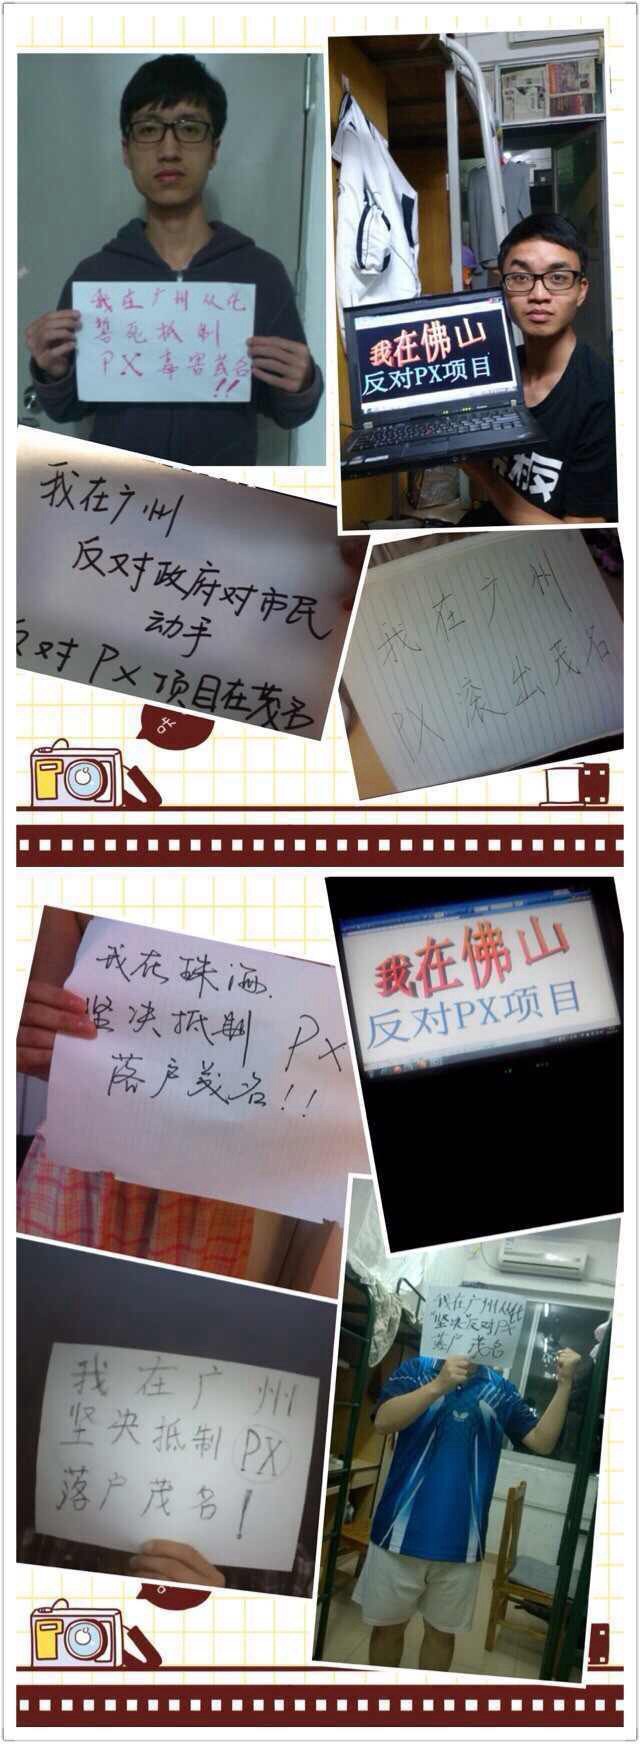 我在广州从化
誓死抵制
PX毒害茂名!!
我在佛山
反对PX项目
板
我在广州
反对政府对市民
动手
反对PX项目在茂名
我在广州
PX滚出茂名
我在珠海.
坚决抵制 PX
落户茂名!!
我在佛山
反对PX项目
我在广州
坚决抵制PX
落户茂名!
我在广州从化
坚决反对PX
落户茂名